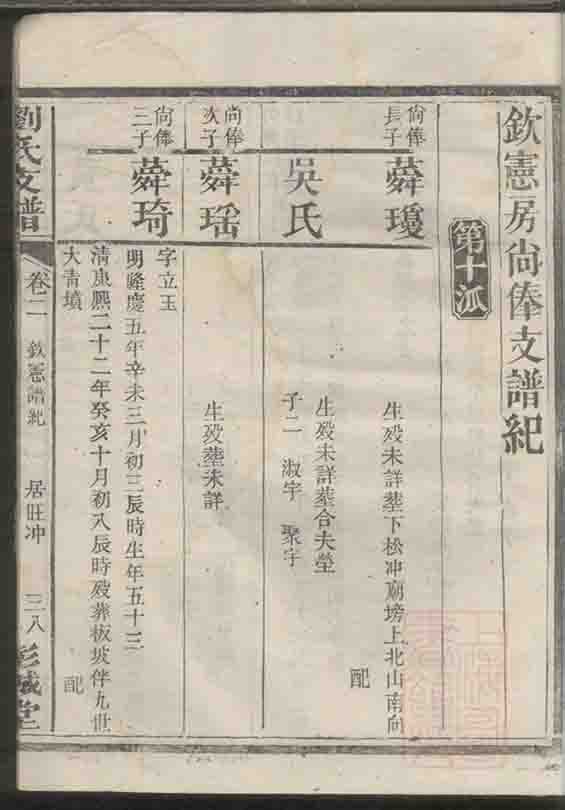 欽憲房尚俸支譜紀
第十派
尚俸
長子
蕣瓊
生歿未詳塟下松冲廟塝上北山南向
配
吳氏
生歿未詳塟合夫塋
子二 淑宇 聚宇
尚俸
次子
蕣瑶
生歿塟未詳
尚俸
三子
蕣琦
字立玉
明隆慶五年辛未三月初三辰時生年五十三
清康熙二十二年癸亥十月初八辰時歿葬板坡伴九世
大青墳
配
劉氏支譜
卷二
欽憲譜紀
居旺冲
三八
彭城堂